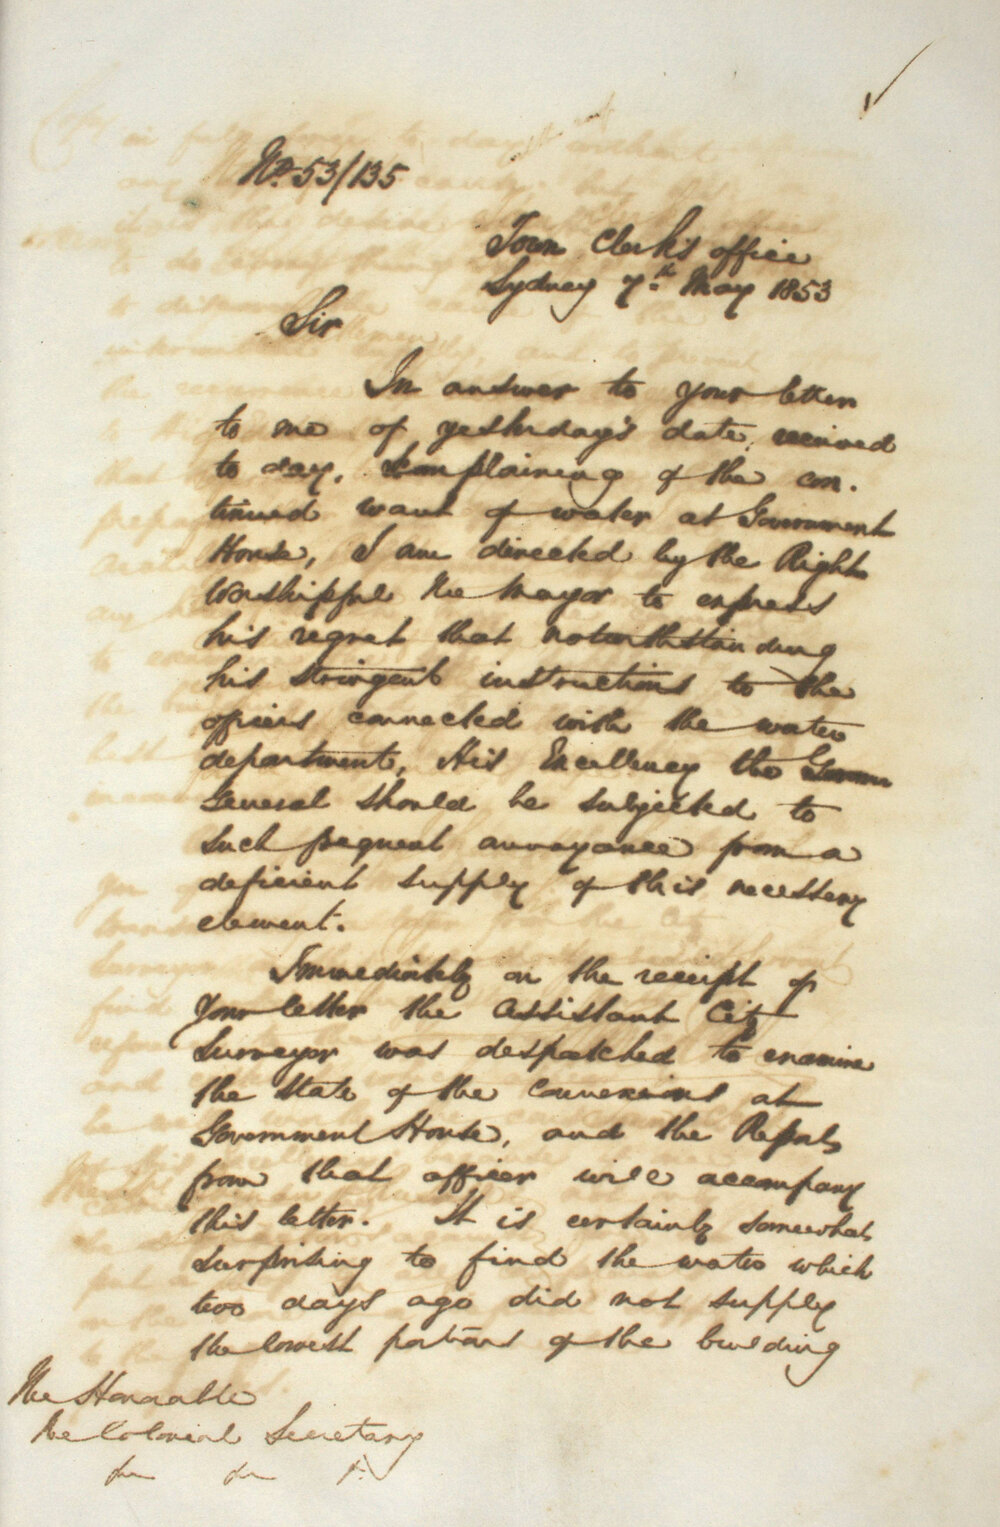 No. 53/135
Town Clerk's office
Sydney 7th May 1853
Sir
In answer to your letter
to me of yesterday's date, received
to day, complaining of the con.
tinued want of water at Government
House, I am directed by the Right
Worshipful the Mayor to express
his regret that notwithstanding
his stringent instructions to the
officers connected with the water
department, His Excellency the Governor
General should be subjected to
such frequent annoyance from a
deficient supply of this necessary
element.
Immediately on the receipt of
your letter the Assistant City
Surveyor was despatched to examine
the state of the connexions at
Government House, and the Report
from that officer will accompany
this letter. It is certainly somewhat
surprising to find the water which
two days ago did not supply
the lowest portions of the building
The Honorable
The Colonial Secretary